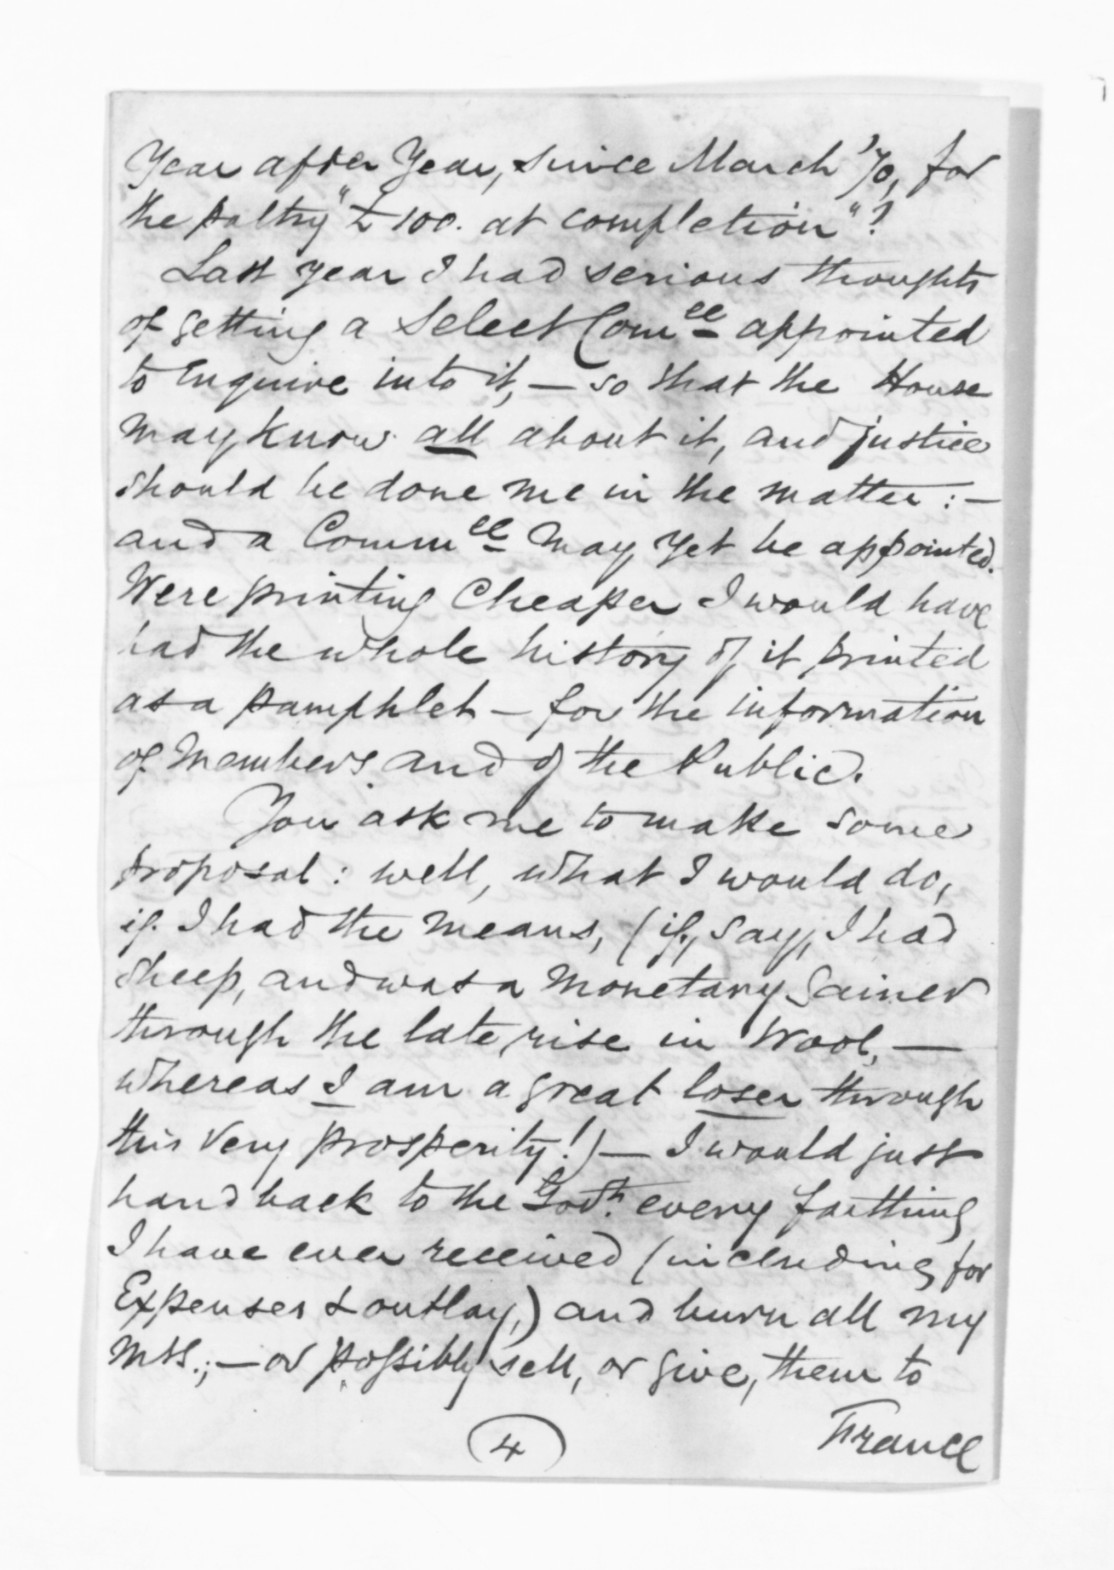 Year after Year, since March '70, for
the paltry "£100. at completion"?
Last year I had serious thoughts
of getting a Select Comee appointed
to enquire into it, — so that the House
may know all about it, and justice
should be done me in the matter: —
and a Commee may yet be appointed.
Were printing Cheaper I would have
had the whole history of it printed
as a pamphlet — for the information
of Members and of the Public.
You ask me to make some
proposal: well, what I would do,
if I had the means, (if, say, I had
sheep, and was a monetary gainer
through the late rise in Wool, —
whereas I am a great loser through
this very prosperity!) — I would just
hand back to the Govt. every farthing
I have ever received (including for
Expenses & outlay,) and burn all my
MSS.; — or possibly sell, or give, them to
France
4